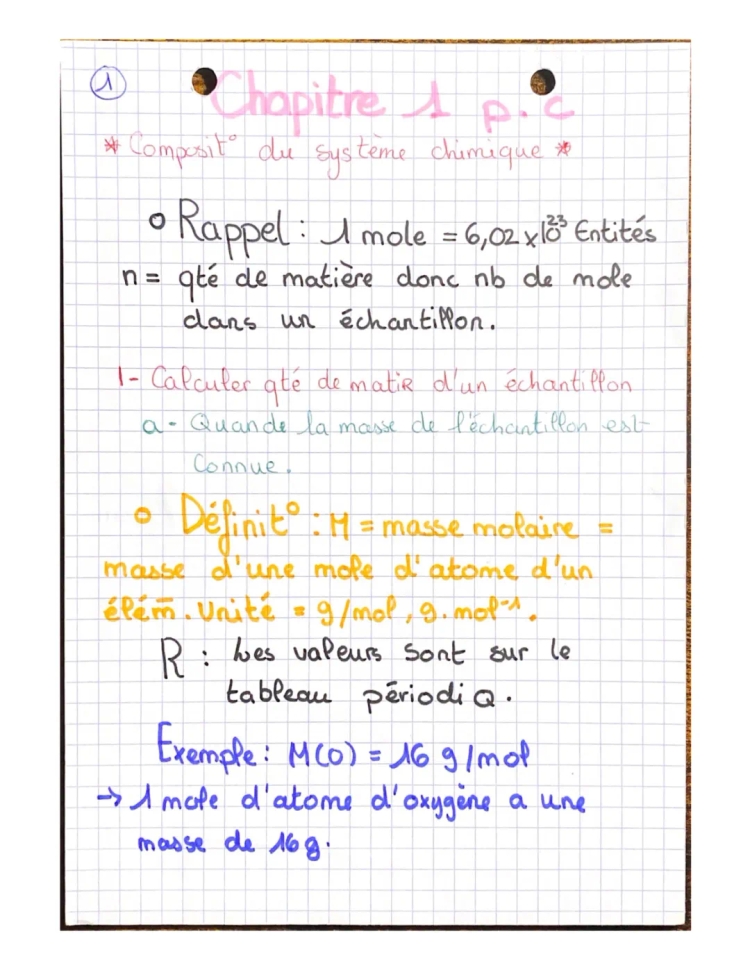 1
Chapitre 1 p.c
* Composit° du système chimique *
° Rappel : 1 mole = 6,02 x 10²³ Entités
n = qté de matière donc nb de mole
dans un échantillon.
1- Calculer qté de matiR d'un échantillon
a - Quande la masse de l'échantillon est
Connue.
° Définit° : M = masse molaire =
masse d'une mole d'atome d'un
élém̄. Unité = g/mol, g.mol⁻¹.
R : Les valeurs sont sur le
tableau périodiQ.
Exemple : M(O) = 16 g/mol
→ 1 mole d'atome d'oxygène a une
masse de 16g.